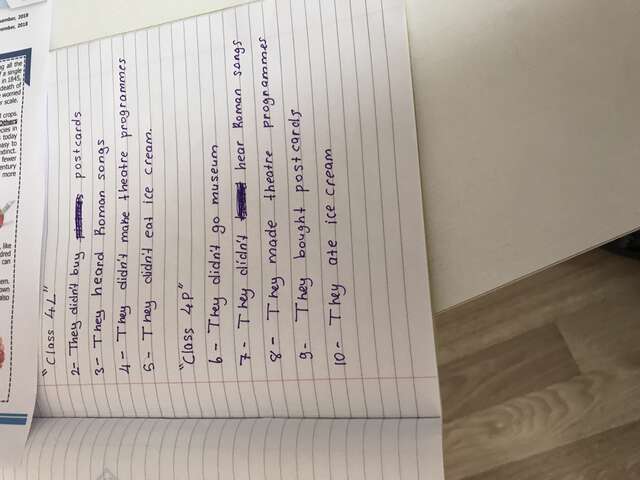 "Class 4L"
2- They didn't buy postcards
3- They heard Roman songs
4- They didn't make theatre programmes
5- They didn't eat ice cream.
"Class 4P"
6- They didn't go museum
7- They didn't hear Roman songs
8- They made theatre programmes
9- They bought postcards
10- They ate ice cream